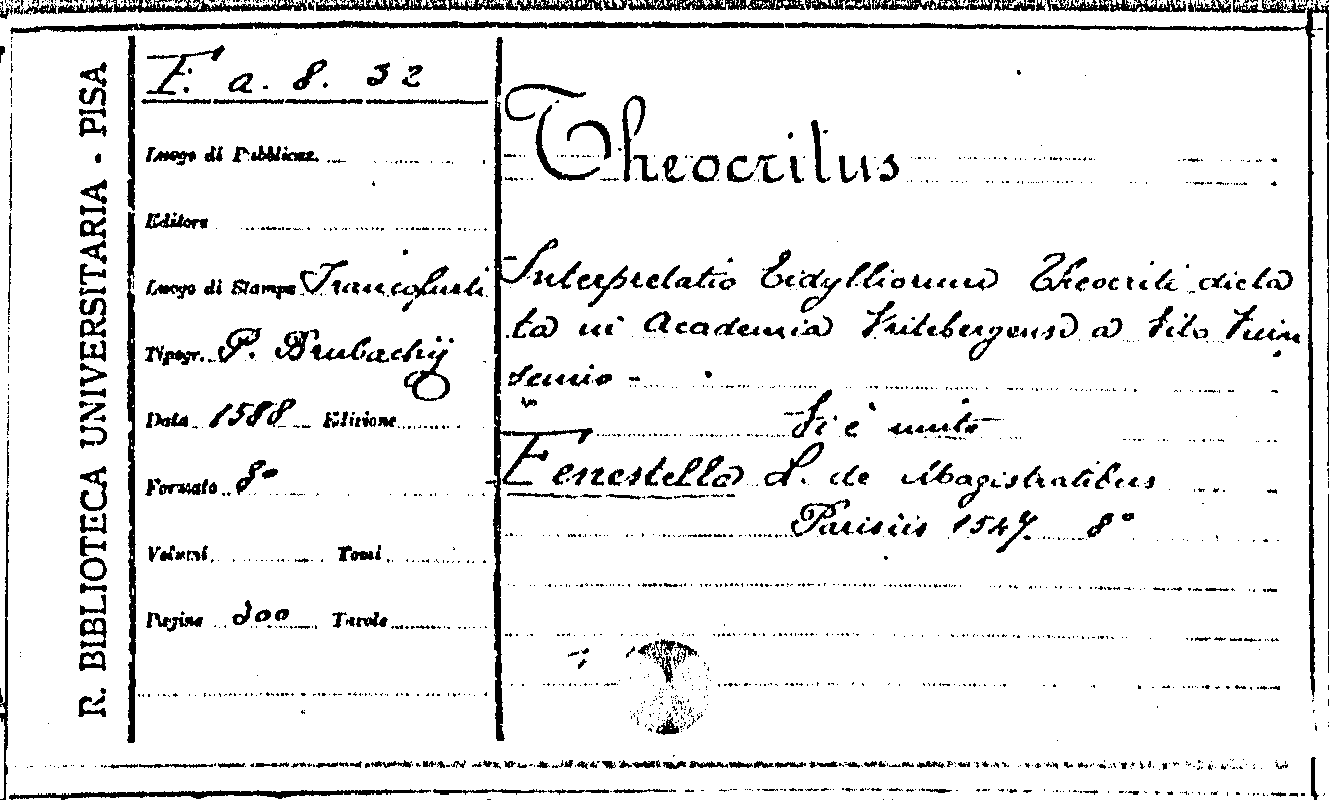 R. BIBLIOTECA UNIVERSITARIA - PISA
F. a. 8. 32
Luogo di Pubblicaz.
Editore
Luogo di Stampa Francofurti
Tipogr. P. Brubachij
Data 1588 Edizione
Formato 8º
Volumi Tomi
Pagine 200 Tavole
Theocritus
Interpretatio Eidylliorum Theocriti dicta
ta in Academia Vitebergensi a Vito Vuin
semio -
Vi è unito
Fenestella L. de Magistratibus
Parisiis 1547. 8º